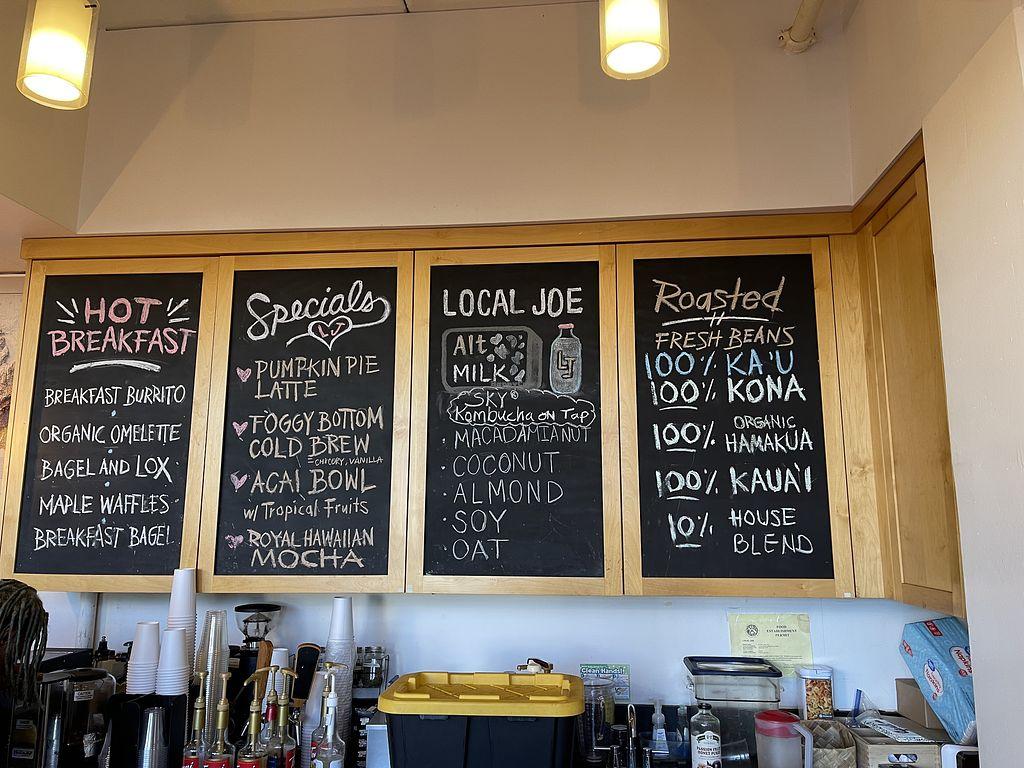 HOT
BREAKFAST
BREAKFAST BURRITO
ORGANIC OMELETTE
BAGEL AND LOX
MAPLE WAFFLES
BREAKFAST BAGEL
Specials
LJ
PUMPKIN PIE
LATTE
FOGGY BOTTOM
COLD BREW
=CHICORY, VANILLA
ACAI BOWL
w/ Tropical Fruits
ROYAL HAWAIIAN
MOCHA
LOCAL JOE
Alt
MILK
LJ
SKY
Kombucha on Tap
MACADAMIANUT
COCONUT
ALMOND
SOY
OAT
Roasted
FRESH BEANS
100% KA'U
100% KONA
100% ORGANIC
HAMAKUA
100% KAUA'I
10% HOUSE
BLEND
FOOD
ESTABLISHMENT
PERMIT
Clean Hands!!